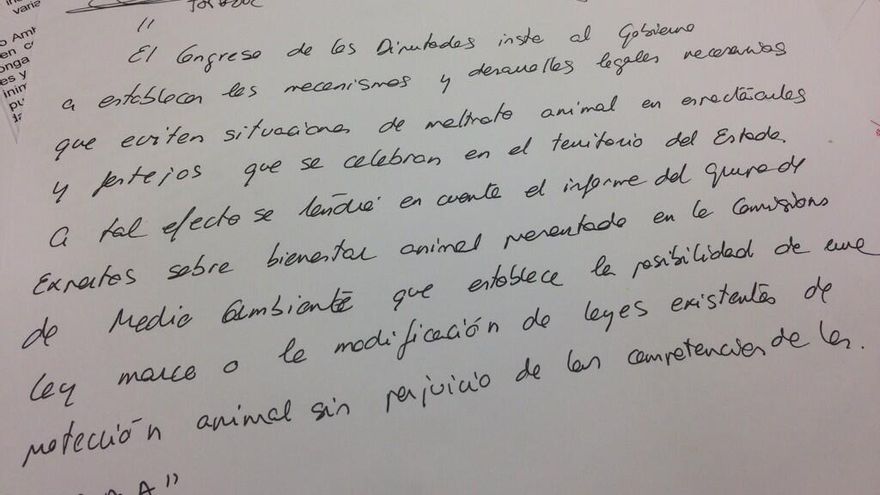 "
El Congreso de los Diputados inste al Gobierno
a establecer los mecanismos y desarrollos legales necesarios
que eviten situaciones de maltrato animal en espectáculos
y festejos que se celebran en el territorio del Estado.
A tal efecto se tendrá en cuenta el informe del grupo de
Expertos sobre bienestar animal presentado en la Comisión
de Medio Ambiente que establece la posibilidad de una
ley marco o la modificación de leyes existentes de
protección animal sin perjuicio de las competencias de las
"